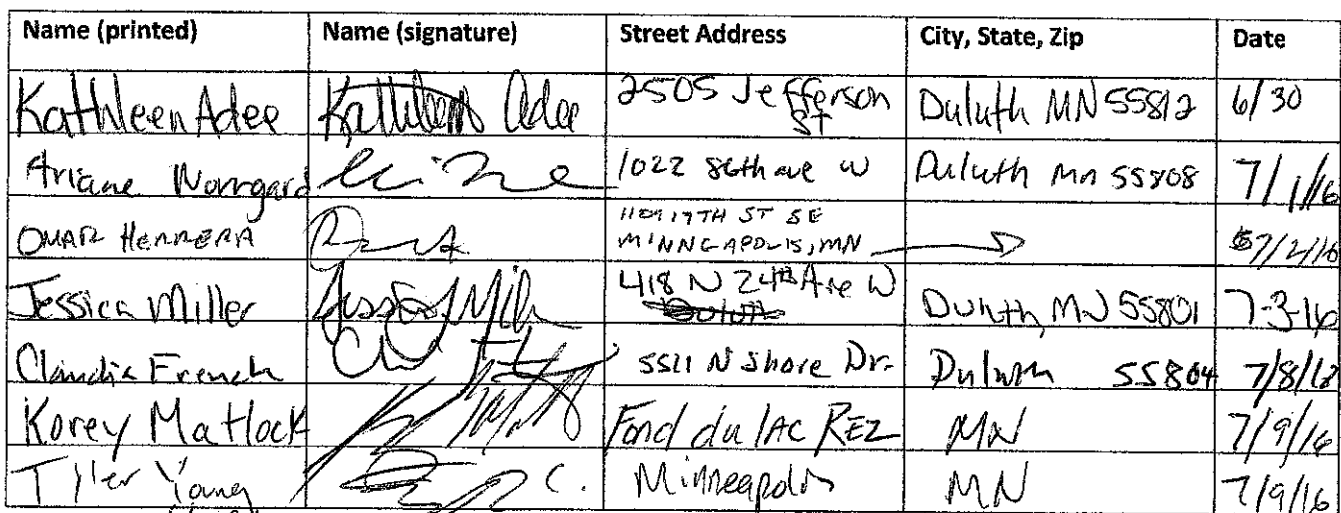 Name (printed) Name (signature) Street Address City, State, Zip Date
Kathleen Adee Kathleen Adee 2505 Jefferson St Duluth MN 55812 6/30
Ariane Norrgard 1022 86th ave W Duluth Mn 55808 7/1/16
OMAR HERRERA 17TH ST SE MINNEAPOLIS, MN 7/2/16
Jessica Miller 418 N 24th Ave W Duluth, MN 55801 7-3-16
Claudia French 5511 N Shore Dr. Duluth 55804 7/8/
Korey Matlock Fond du lAC REZ MN 7/9/16
Tyler Young Minneapolis MN 7/9/16